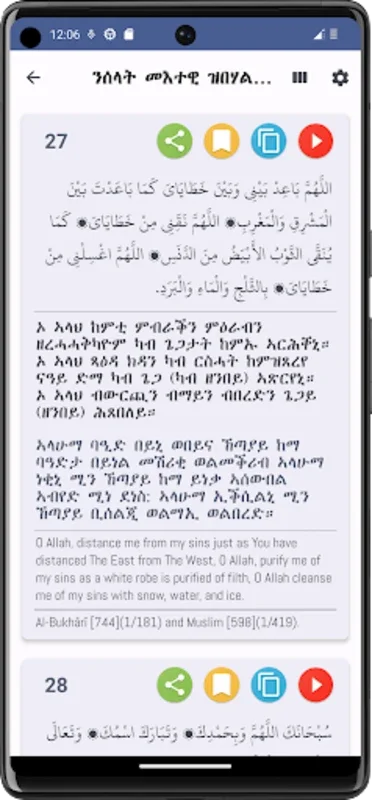 12:06
ንሰላት መእተዊ ዝበሃል...
27
اللَّهُمَّ بَاعِدْ بَيْنِي وَبَيْنَ خَطَايَايَ كَمَا بَاعَدْتَ بَيْنَ
الْمَشْرِقِ وَالْمَغْرِبِ۞ اللَّهُمَّ نَقِّنِي مِنْ خَطَايَايَ۞ كَمَا
يُنَقَّى الثَّوْبُ الأَبْيَضُ مِنَ الدَّنَسِ۞ اللَّهُمَّ اغْسِلْنِي مِنْ
خَطَايَايَ۞ بِالثَّلْجِ وَالْمَاءِ وَالْبَرَدِ.
ኦ ኣላህ ከምቲ ምብራቕን ምዕራብን
ዘረሓሓቅካዮም ካብ ጌጋታት ከምኡ ኣርሕቐኒ።
ኦ ኣላህ ጻዕዳ ክዳን ካብ ርስሓት ከምዝጸረየ
ናዓይ ድማ ካብ ጌጋ (ካብ ዘንበይ) ኣጽርየኒ።
ኦ ኣላህ ብውርጪን ብማይን ብበረድን ጌጋይ
(ዘንበይ) ሕጸበለይ።
ኣላሁማ ባዒድ በይኒ ወበይና ኸጣያይ ከማ
ባዓድታ በይነል መሽሪቂ ወልመቕሪብ ኣላሁማ
ነቂኒ ሚን ኸጣያይ ከማ ይነቃ ኣሰውበል
ኣብየድ ሚነ ደነስ፡ ኣላሁማ ኢቕሲልኒ ሚን
ኸጣያይ ቢሰልጂ ወልማኢ ወልበረድ።
O Allah, distance me from my sins just as You have
distanced The East from The West, O Allah, purify me of
my sins as a white robe is purified of filth, O Allah cleanse
me of my sins with snow, water, and ice.
Al-Bukhārī [744](1/181) and Muslim [598](1/419).
28
سُبْحَانَكَ اللَّهُمَّ وَبِحَمْدِكَ۞ وَتَبَارَكَ اسْمُكَ۞ وَتَعَالَى